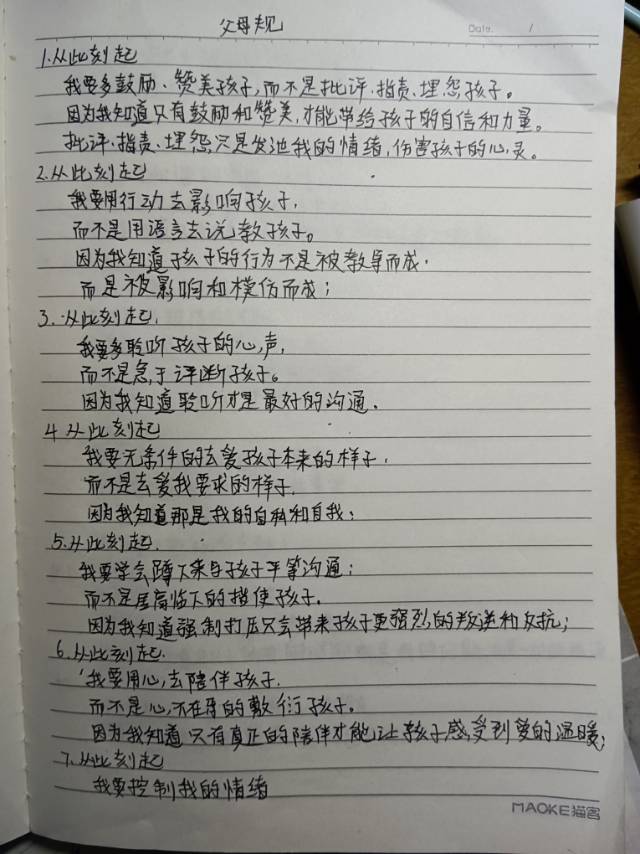 父母规
Date. /
1.从此刻起
我要多鼓励、赞美孩子,而不是批评、指责、埋怨孩子。
因为我知道只有鼓励和赞美,才能带给孩子的自信和力量。
批评、指责、埋怨只是发泄我的情绪,伤害孩子的心灵。
2.从此刻起
我要用行动去影响孩子,
而不是用语言去说教孩子。
因为我知道孩子的行为不是被教导而成.
而是被影响和模仿而成;
3.从此刻起.
我要多聆听孩子的心声,
而不是急于评断孩子。
因为我知道聆听才是最好的沟通.
4从此刻起
我要无条件的去爱孩子本来的样子.
而不是去爱我要求的样子.
因为我知道那是我的自私和自我;
5.从此刻起.
我要学会蹲下来与孩子平等沟通;
而不是居高临下的指使孩子.
因为我知道强制打压只会带来孩子更强烈的叛逆和反抗;
6.从此刻起.
我要用心去陪伴孩子.
而不是心不在焉的敷衍孩子。
因为我知道只有真正的陪伴才能让孩子感受到爱的温暖;
7.从此刻起
我要控制我的情绪
MAOKE猫客